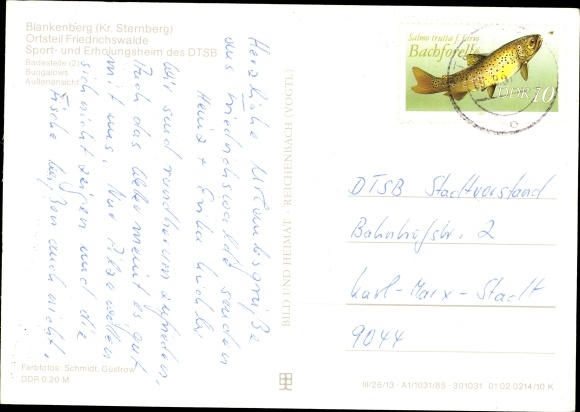 Blankenberg (Kr. Sternberg)
Ortsteil Friedrichswalde
Sport- und Erholungsheim des DTSB
Badestelle (2)
Bungalows
Außenansicht
Herzliche Urlaubsgrüße
aus Friedrichswalde senden
Heinz + Erika
Wir sind rundherum zufrieden.
Auch das Wetter meint es gut
mit uns. Nur Pilze wollen
sich nicht zeigen und die
Fische beißen auch nicht.
Farbfotos: Schmidt, Güstrow
DDR 0,20 M
BILD UND HEIMAT · REICHENBACH (VOGTL)
Salmo trutta f. fario
Bachforelle
DDR 10
DTSB Stadtvorstand
Bahnhofstr. 2
Karl-Marx-Stadt
9044
III/26/13 · A1/1031/85 · 301031 01 02 0214/10 K